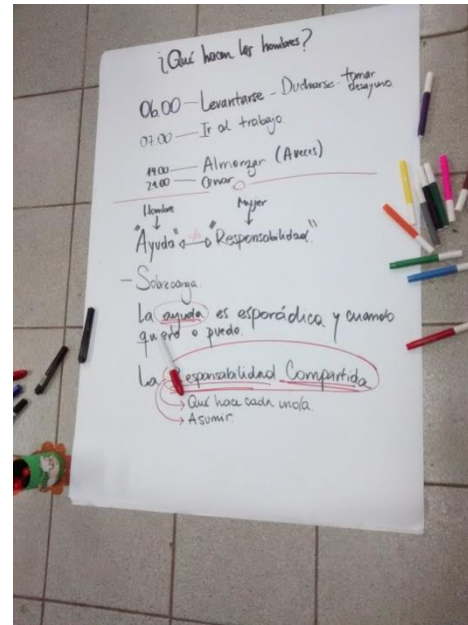 ¿Qué hacen los hombres?
06.00 — Levantarse - Ducharse - tomar desayuno.
07.00 — Ir al trabajo
14.00 — Almorzar (A veces)
21.00 — Cenar
Hombre Mujer
"Ayuda" "Responsabilidad"
— Sobrecarga.
La ayuda es esporádica y cuando
quiero o puedo.
La Responsabilidad Compartida
Qué hace cada uno/a
Asumir.